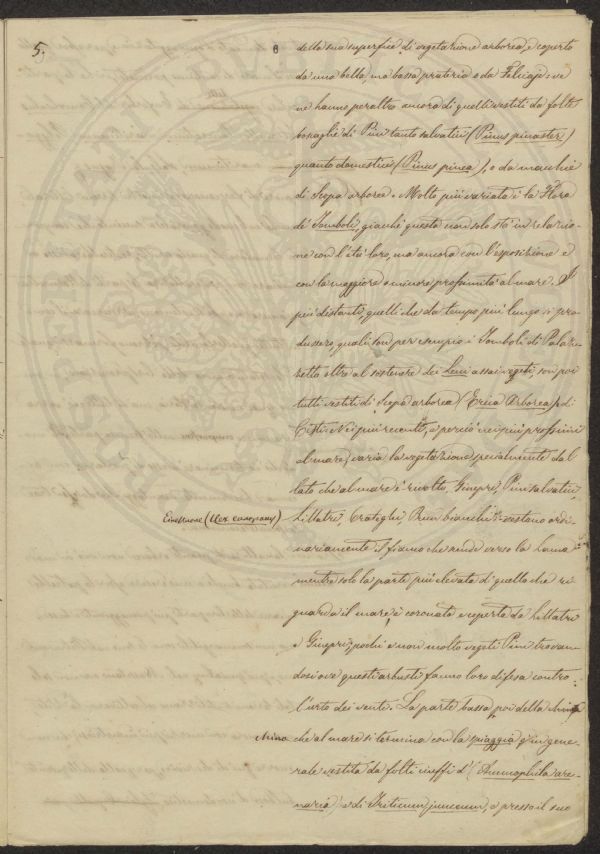 5.
della sua superfice di vegetazione arborea, e coperto
da una bella, ma bassa prateria o da Felciaje: ve
ne hanno peraltro ancora di quelli vestiti da folte
boscaglie di Pini tanto salvatici (Pinus pinaster)
quanto domestici (Pinus pinea), o da macchie
di Scopa arborea. Molto più variata è la Flora
di Tomboli, giacchè questa non solo stà in relazio-
ne con l'età loro, ma ancora con l'esposizione e
con la maggiore o minore prossimità al mare. I
più distanti, quelli che da tempo più lungo si pro-
dussero, quali son per esempio i Tomboli di Palaz-
zetto oltre al sostenere dei Lecci assai vegeti, son poi
tutti vestiti di Scopa arborea (Erica Arborea) e di
Cisti. Nei più recenti, e perciò nei più prossimi
al mare, varia la vegetazione, specialmente dal
lato che al mare è rivolto, Ginepri, Pini salvatici,
Ginestrone (Ulex europaeus)
Lillatri, Cratighi, Prun bianchi vestano ordi-
nariamente il fianco che pende verso la Lama
mentre solo la parte più elevata di quello che ri-
guarda il mare, è coronata e coperta da Lillatri
e Ginepri, pochi e non molto vegeti Pini trovan-
dosi ove questi arbusti fanno loro difesa contro
l'urto dei venti. La parte bassa, poi della
china
che al mare si termina con la spiaggia, è in gene-
rale vestita da folti ciuffi d'(Ammophila are-
naria) e di Triticum junceum, e presso il suo